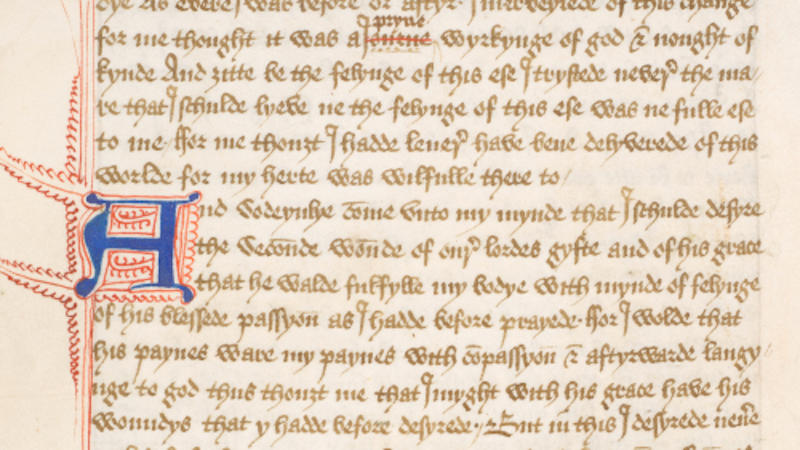 dye As evere I was before or aftyr. I merveylede of this change
pryve
for me thought it was a ouene wyrkynge of god & nought of
kynde And zitte be the felynge of this ese I trystede never the ma
re that I schulde lyeve ne the felynge of this ese was ne fulle ese
to me. ffor me thouzt I hadde lever have bene delyverede of this
worlde for my herte was wilfulle there to/
And sodeynlye come vnto my mynde that I schulde desyre
the seconde wonde of our lordes gyfte and of his grace
that he walde fulfylle my bodye with mynde of felynge
of his blessede passyon as I hadde before prayede. ffor I wolde that
his paynes ware my paynes with compassyon & aftyrwarde langy
nge to god thus thouzt me that I myght with his grace have his
woundys that y hadde before desyrede. But in this I desyrede nevere